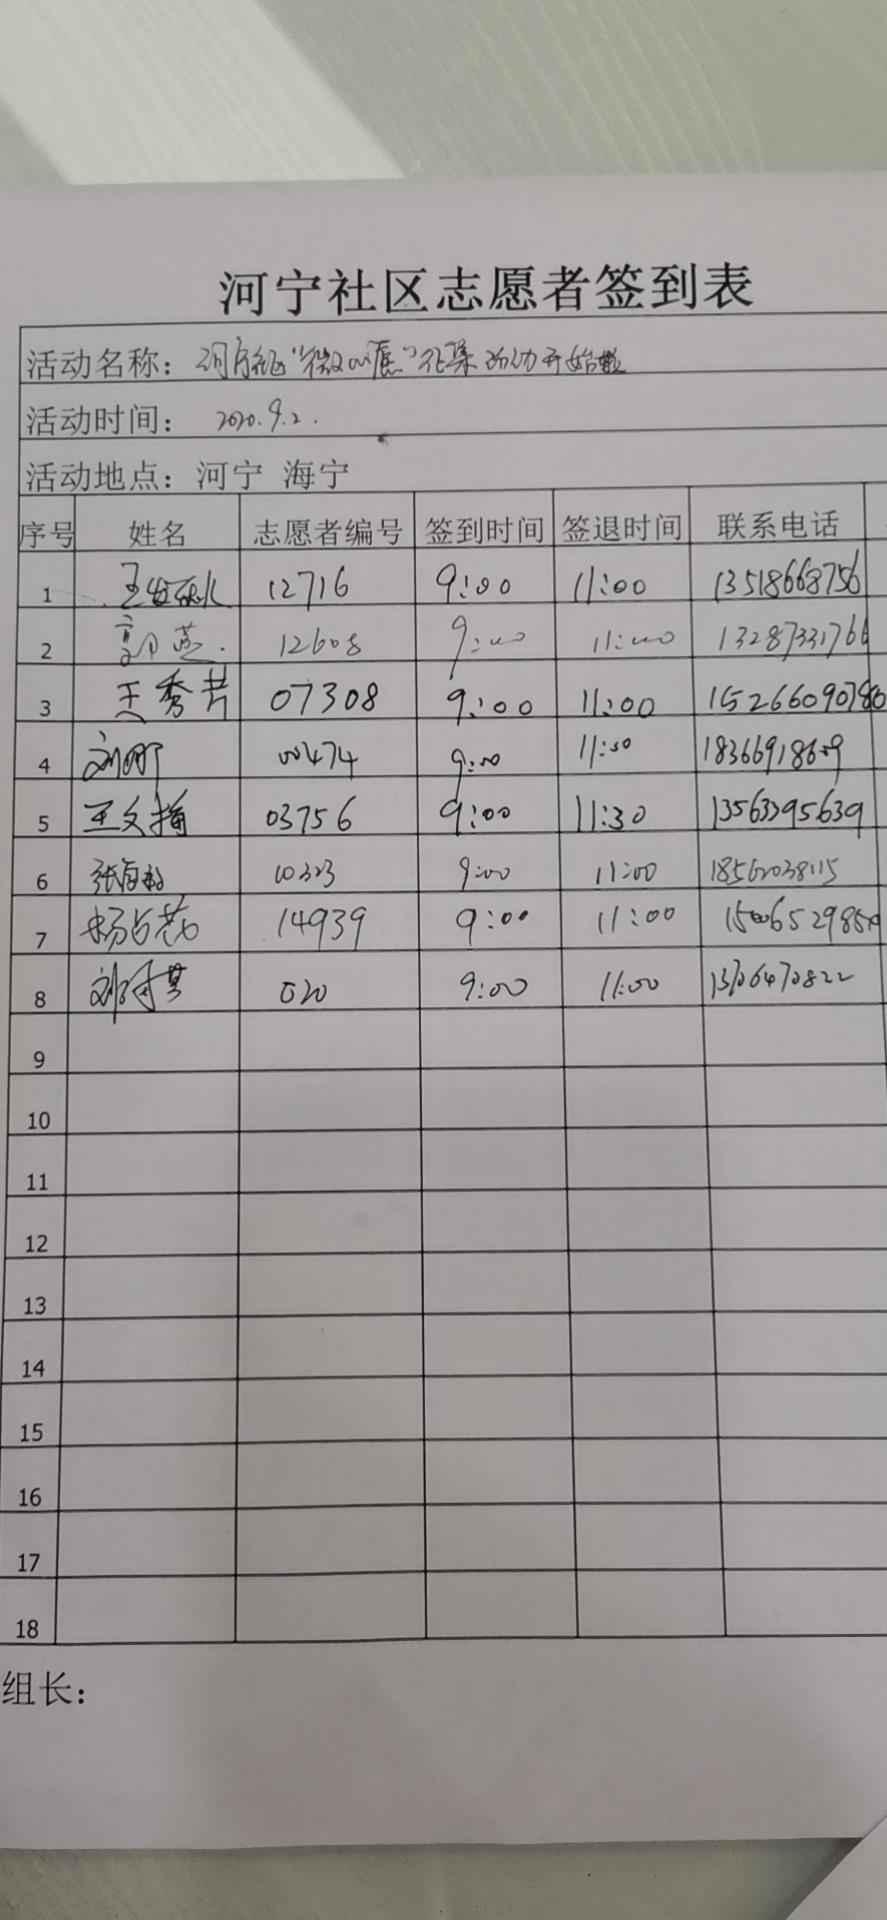 河宁社区志愿者签到表
活动名称： "微心愿"征集活动开始啦
活动时间： 2020.9.2.
活动地点：河宁 海宁
序号 姓名 志愿者编号 签到时间 签退时间 联系电话
1 12716 9:00 11:00 13518668756
2 郭燕 12608 9:00 11:00 13287331766
3 王秀芳 07308 9:00 11:00
4 刘娜 00474 9:00 11:30
5 王文梅 03756 9:00 11:30 13563395639
6 10323 9:00 11:00
7 杨占花 14939 9:00 11:00
8 020 9:00 11:00 13706470822
9
10
11
12
13
14
15
16
17
18
组长：